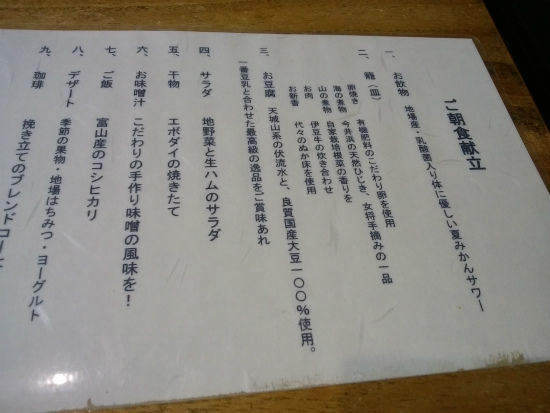 ご朝食献立
一、お飲物 地場産・乳酸菌入り体に優しい夏みかんサワー
二、籠(皿)
卵焼き 有機肥料のこだわり卵を使用
海の煮物 今井浜の天然ひじき、女将手摘みの一品
山の煮物 自家栽培根菜の香りを
お肉 伊豆牛の炊き合わせ
お新香 代々のぬか床を使用
三、お豆腐 天城山系の伏流水と、良質国産大豆一〇〇%使用。
一番豆乳と合わせた最高級の逸品をご賞味あれ
四、サラダ 地野菜と生ハムのサラダ
五、干物 エボダイの焼きたて
六、お味噌汁 こだわりの手作り味噌の風味を!
七、ご飯 富山産のコシヒカリ
八、デザート 季節の果物・地場はちみつ・ヨーグルト
九、珈琲 挽き立てのブレンドコーヒ